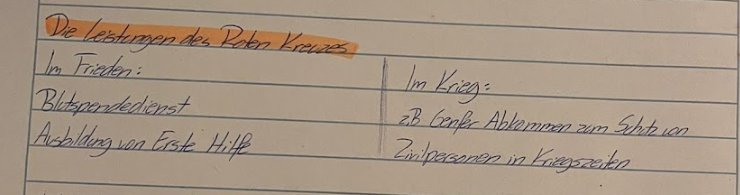 Die Leistungen des Roten Kreuzes
Im Frieden:
Blutspendedienst
Ausbildung von Erste Hilfe
Im Krieg:
z.B Genfer Abkommen zum Schutz von
Zivilpersonen in Kriegszeiten